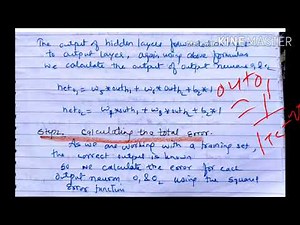 The output of hidden layers
to output layer, again using above formulas
we calculate the output of output neurons
net₀₁ = w₅*outh₁ + w₆*outh₂ + b₂*1
net₀₂ = w₇*outh₁ + w₈*outh₂ + b₂*1
out0₁
= 1
Step2. Calculating the total error-
As we are working with a training set,
the correct output is known
So we calculate the error for each
output neuron O₁ & O₂ using the square
error function
KINEMASTER